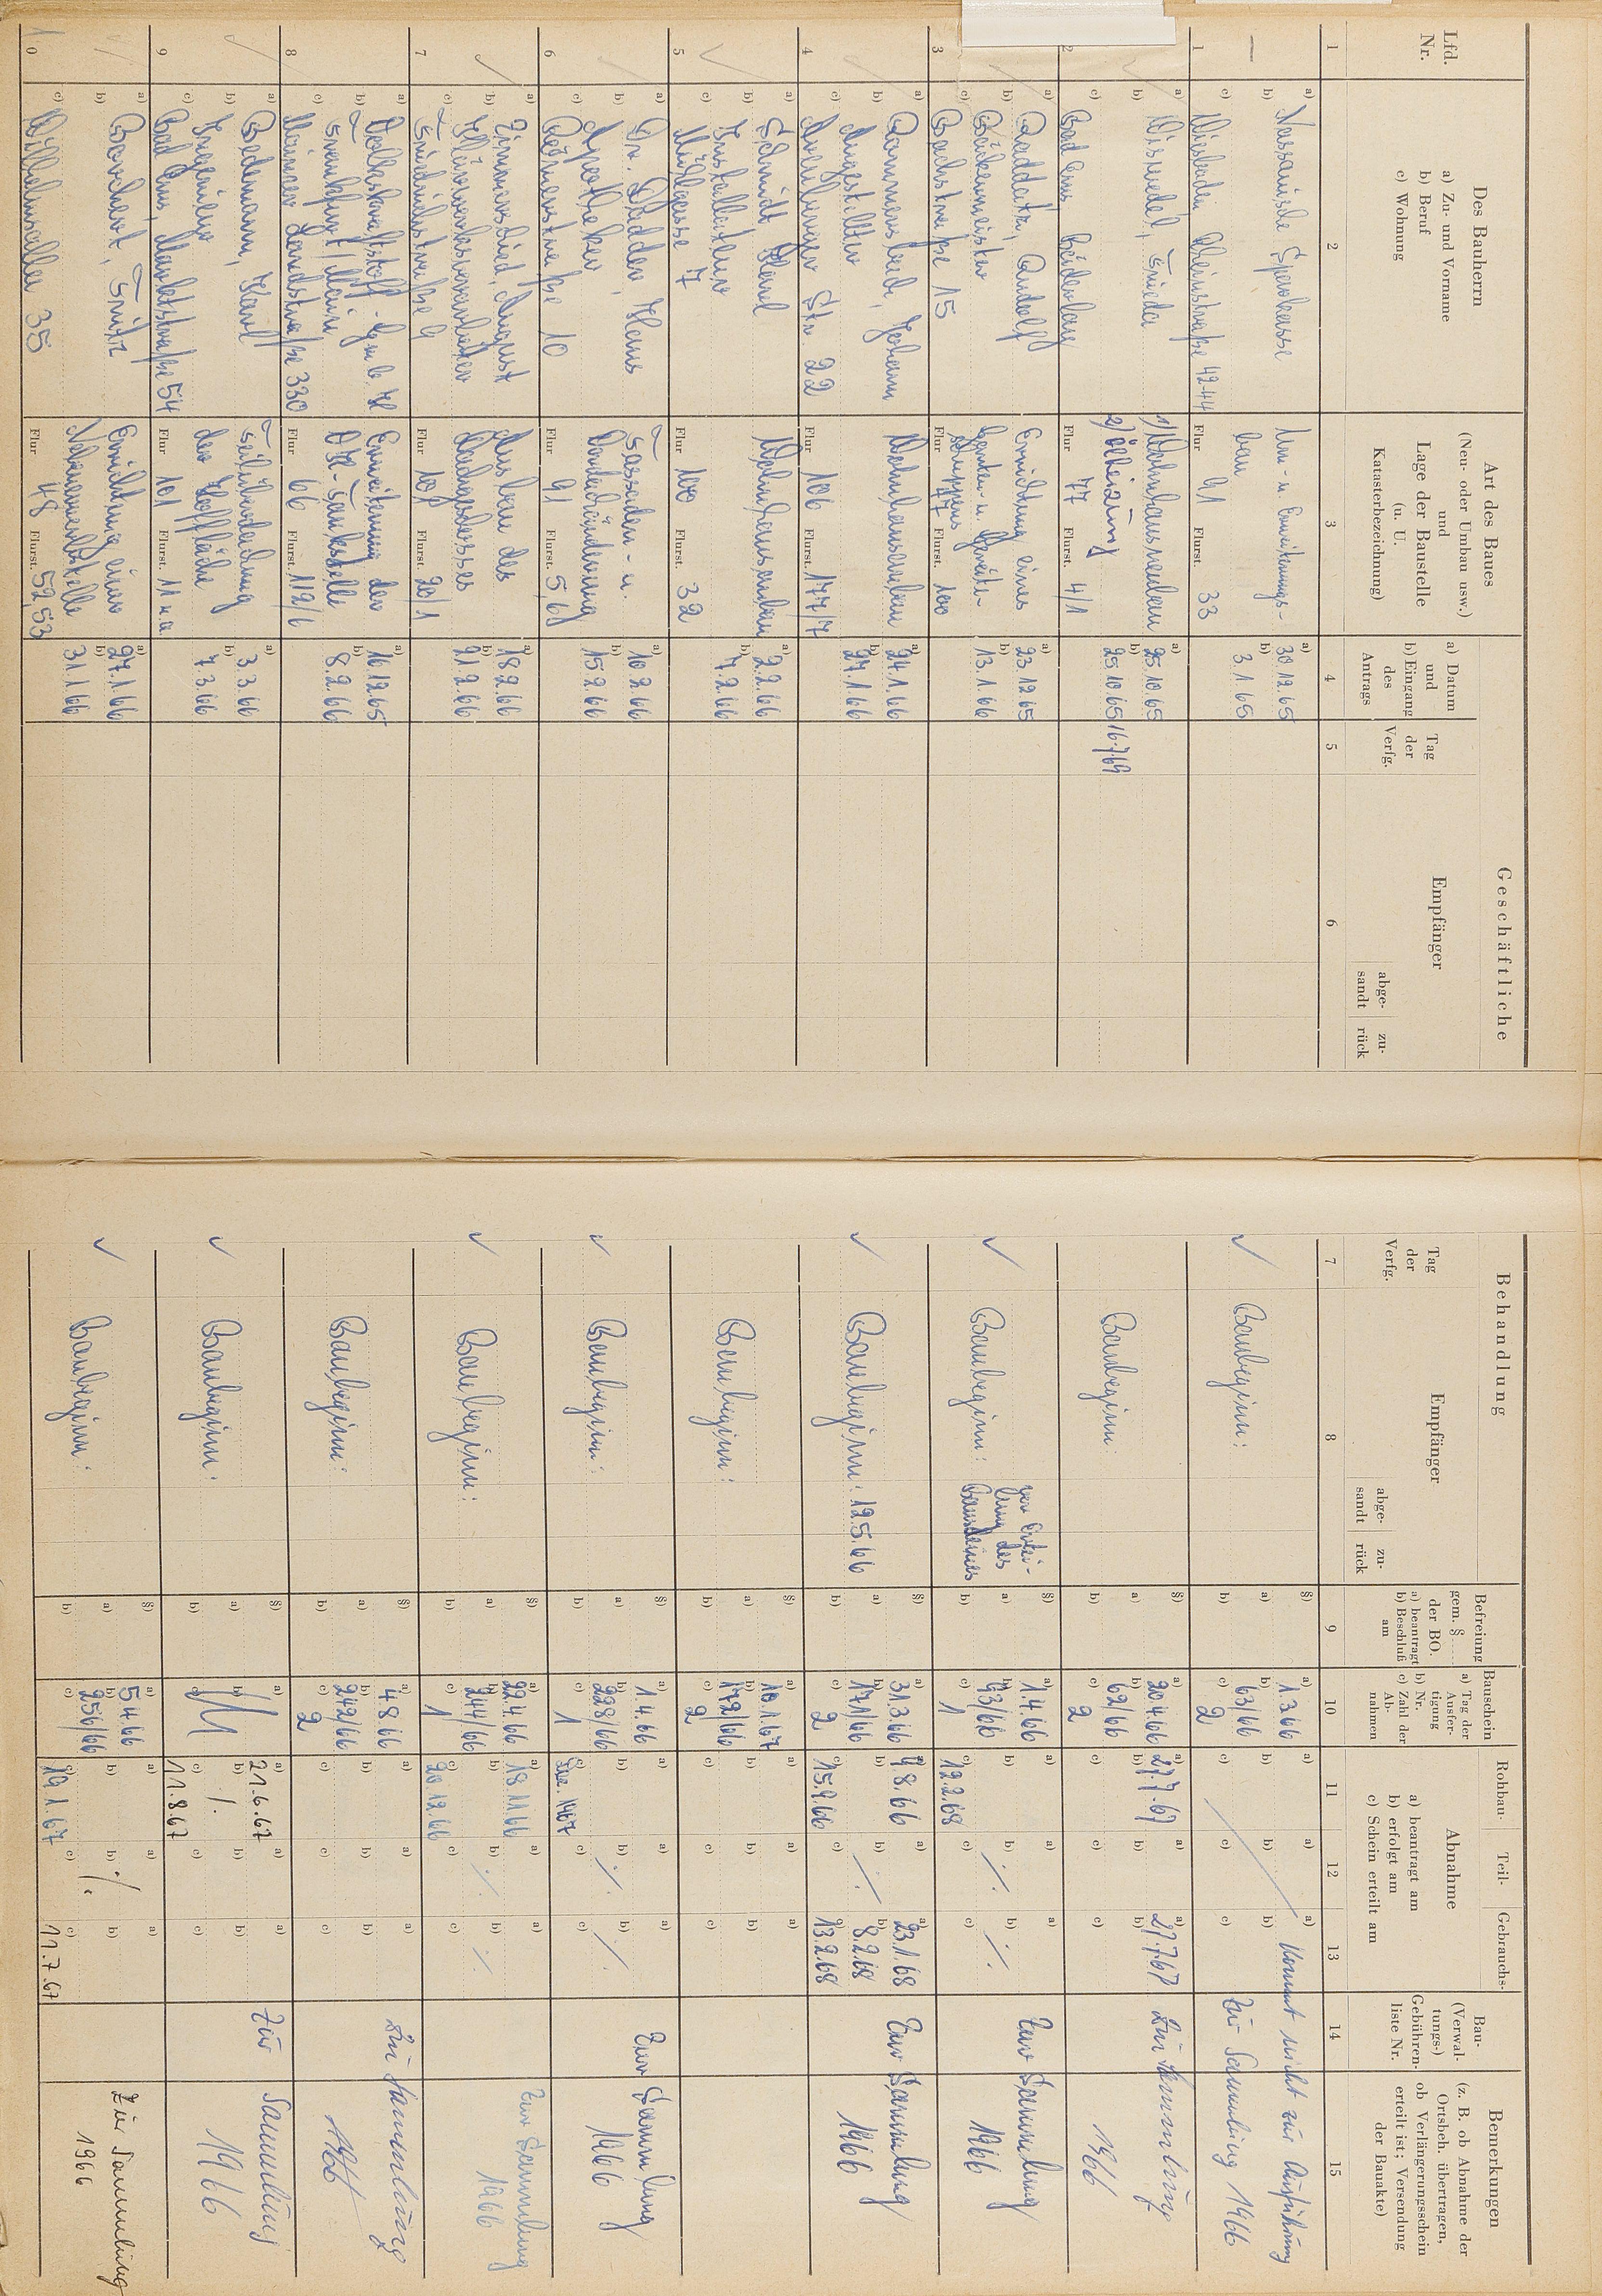 Geschäftliche
Lfd.
Nr.
Des Bauherrn
a) Zu- und Vorname
b) Beruf
c) Wohnung
Art des Baues
(Neu- oder Umbau usw.)
und
Lage der Baustelle
(u. U.
Katasterbezeichnung)
a) Datum
und
b) Eingang
des
Antrags
Tag
der
Verfg.
Empfänger
abge-
sandt
zu-
rück
1 2 3 4 5 6
1
a) Nassauische Sparkasse
b)
c) Wiesbaden Rheinstraße 42-44
Um- u. Erweiterungs-
bau
Flur 91 Flurst. 33
a) 30.12.65
b) 3.1.65
2
a) Frieda
b)
c) Bad Ems,
1) Wohnhausneubau
2) Ölheizung
Flur 77 Flurst. 4/1
a) 25.10.65
b) 25.10.65
16.7.69
3
a) Raddatz, Rudolf
b) Bäckermeister
c) Bachstraße 15
Errichtung eines
Garten- u. Geräte-
schuppens
Flur 77 Flurst. 100
a) 23.12.65
b) 13.1.66
4
a) Johann
b) Angestellter
c) Arenberger Str. 22
Wohnhausanbau
Flur 106 Flurst. 177/7
a) 24.1.66
b) 27.1.66
5
a) Schmidt Karl
b) Installateur
c) Mühlgasse 7
Wohnhausanbau
Flur 100 Flurst. 32
a) 2.2.66
b) 7.2.66
6
a) Dr. Hans
b) Apotheker
c) Römerstraße 10
Fassaden- u.
Dachänderung
Flur 91 Flurst. 5,6
a) 10.2.66
b) 15.2.66
7
a) Zimmerschied, August
b)
c) Friedrichstraße 9
Ausbau des
Dachgeschosses
Flur 101 Flurst. 20/1
a) 18.2.66
b) 21.2.66
8
a) Volkskraftstoff-GmbH
b) Frankfurt/Main
c) Mainzer Landstraße 330
Erweiterung der
VK-Tankstelle
Flur 66 Flurst. 112/6
a) 16.12.65
b) 8.2.66
9
a) Bodemann, Karl
b) Ingenieur
c) Bad Ems, Marktstraße 54
Teilüberdachung
der Hoffläche
Flur 101 Flurst. 11 u.a.
a) 3.3.66
b) 7.3.66
0
a) Borchert, Fritz
b)
c) Wilhelmsallee 35
Errichtung einer
Flur 48 Flurst. 52,53
a) 27.1.66
b) 31.1.66
Behandlung
Tag
der
Verfg.
Empfänger
abge-
sandt
zu-
rück
Befreiung
gem. §
der BO.
a) beantragt
b) Beschluß
am
Bauschein
a) Tag der
Ausfer-
tigung
b) Nr.
c) Zahl der
Ab-
nahmen
Rohbau- Teil- Gebrauchs-
Abnahme
a) beantragt am
b) erfolgt am
c) Schein erteilt am
Bau-
(Verwal-
tungs-)
Gebühren-
liste Nr.
Bemerkungen
(z. B. ob Abnahme der
Ortsbeh. übertragen,
ob Verlängerungsschein
erteilt ist; Versendung
der Bauakte)
7 8 9 10 11 12 13 14 15
Baubeginn:
§)
a)
b)
a) 1.3.66
b) 63/66
c) 2
Kommt nicht zur Ausführung
Zur Sammlung 1966
Baubeginn:
§)
a)
b)
a) 20.4.66
b) 62/66
c) 2
a) 27.7.67
a) 27.7.67
Zur Sammlung
1966
Baubeginn:
vor Ertei-
lung des
Bauscheines
§)
a)
b)
a) 1.4.66
b) 93/66
c) 1
c) 12.2.68
Zur Sammlung
1966
Baubeginn: 12.5.66
§)
a)
b)
a) 31.3.66
b) 171/66
c) 2
a) 9.8.66
c) 15.9.66
a) 23.1.68
b) 8.2.68
c) 13.2.68
Zur Sammlung
1966
Baubeginn:
§)
a)
b)
a) 10.1.67
b) 172/66
c) 2
Baubeginn:
§)
a)
b)
a) 1.4.66
b) 228/66
c) 1
Zur Sammlung
1966
Baubeginn:
§)
a)
b)
a) 22.4.66
b) 244/66
c) 1
a) 18.11.66
c) 20.12.66
Zur Sammlung
1966
Baubeginn:
§)
a)
b)
a) 4.8.66
b) 242/66
c) 2
Zur Sammlung
1966
Baubeginn:
§)
a)
b)
a) 21.6.67
b) ./.
c) 11.8.67
Zur Sammlung
1966
Baubeginn:
§)
a)
b)
a) 5.4.66
b) 256/66
c)
c) 19.1.67
./.
c) 11.7.67
Zur Sammlung
1966